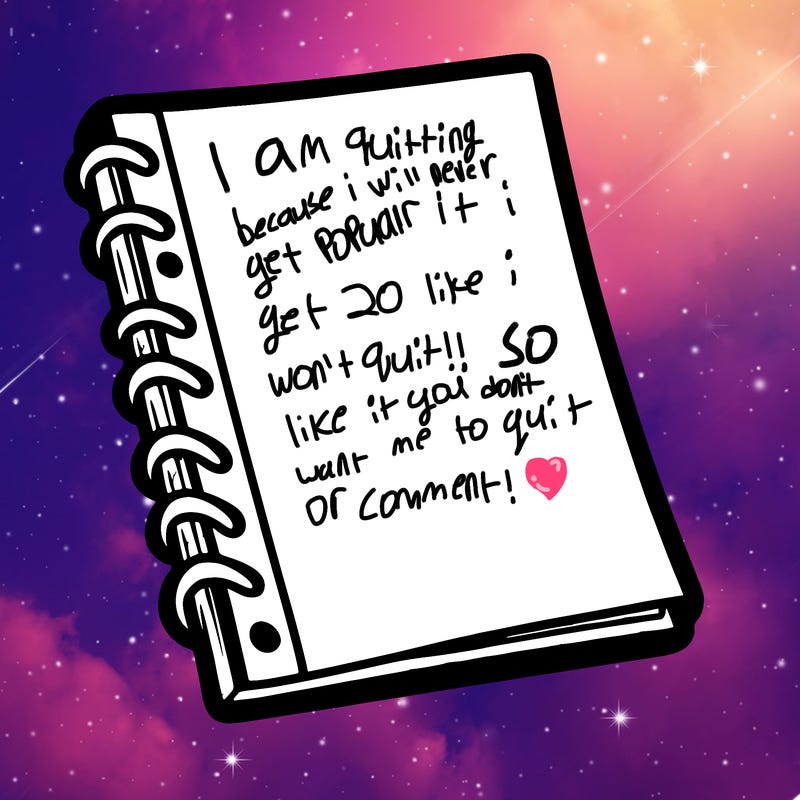 I am quitting
because i will never
get POPUalr it i
get 20 like i
won't quit!! SO
like it you don't
want me to quit
or comment!